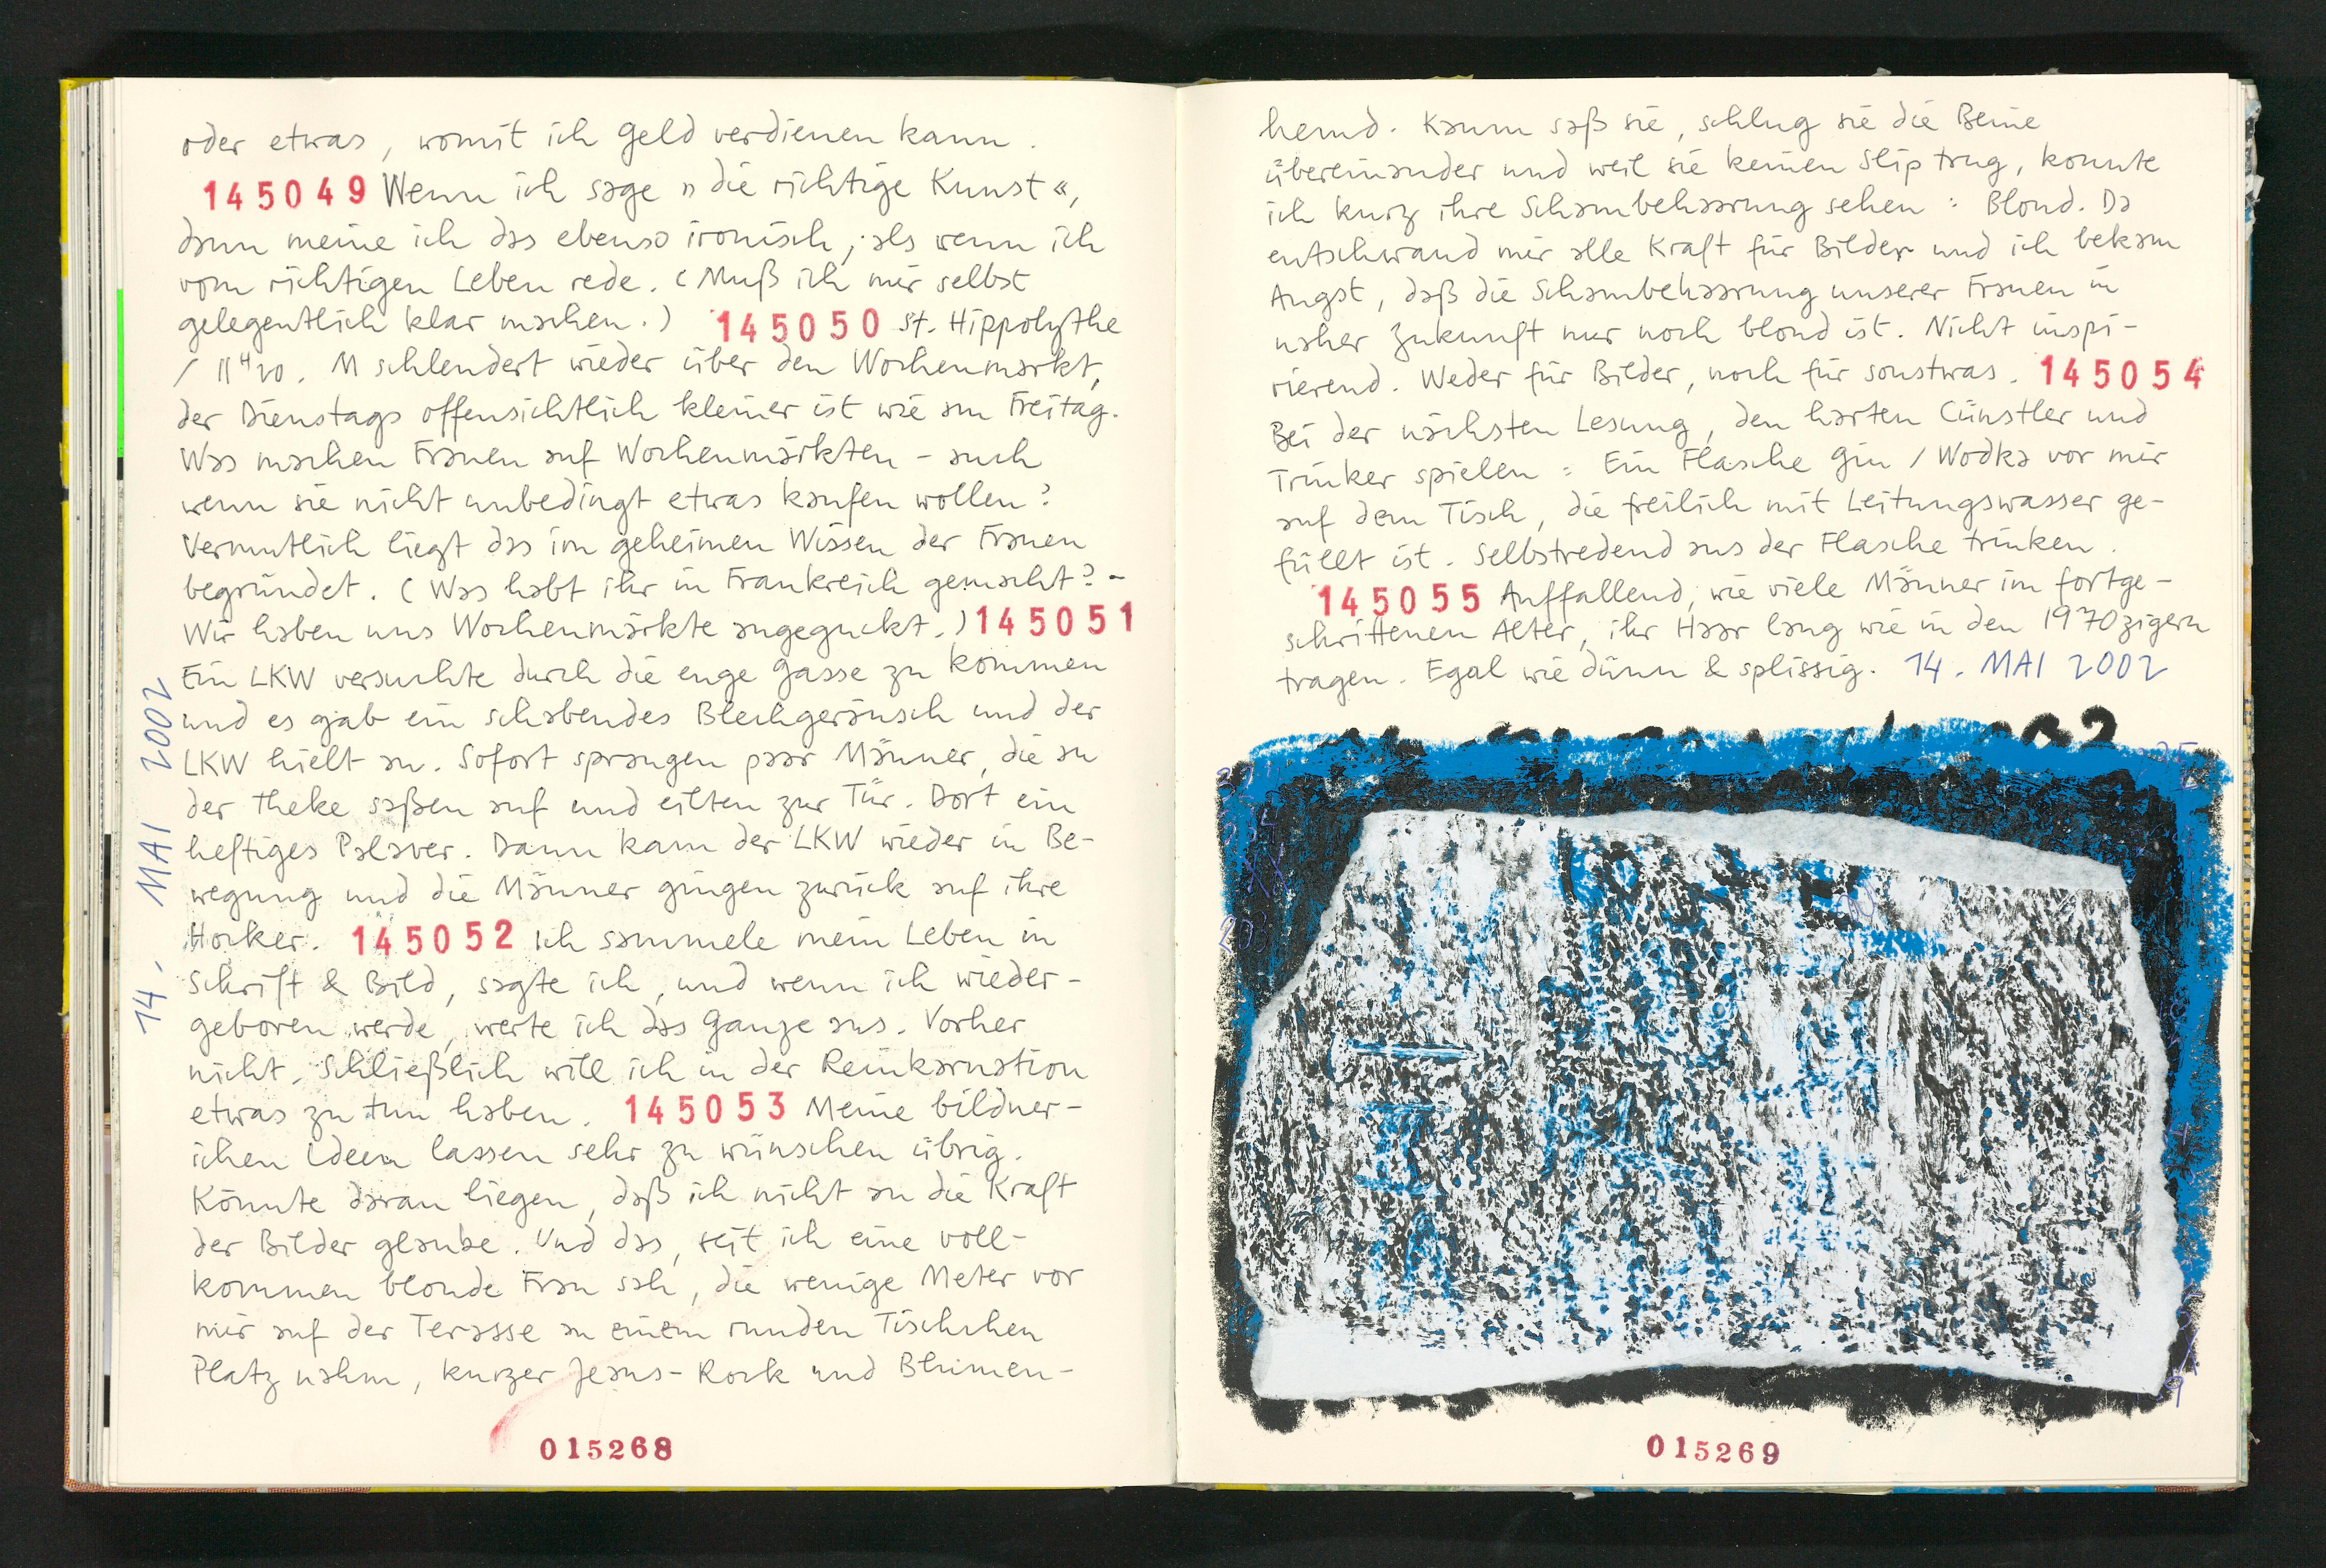 oder etwas, womit ich Geld verdienen kann.
145049 Wenn ich sage »die richtige Kunst«,
dann meine ich das ebenso ironisch, als wenn ich
vom richtigen Leben rede. (Muß ich mir selbst
gelegentlich klar machen.) 145050 St. Hippolythe
/ 11 4 20. M schlendert wieder über den Wochenmarkt,
der Dienstags offensichtlich kleiner ist wie am Freitag.
Was machen Frauen auf Wochenmärkten - auch
wenn sie nicht unbedingt etwas kaufen wollen?
Vermutlich liegt das im geheimen Wissen der Frauen
begründet. (Was habt ihr in Frankreich gemacht? -
Wir haben uns Wochenmärkte angeguckt.) 145051
Ein LKW versuchte durch die enge Gasse zu kommen
und es gab ein schabendes Blechgeräusch und der
LKW hielt an. Sofort sprangen paar Männer, die an
der Theke saßen auf und eilten zur Tür. Dort ein
heftiges Palaver. Dann kam der LKW wieder in Be-
wegung und die Männer gingen zurück auf ihre
Hocker. 145052 Ich sammele mein Leben in
Schrift & Bild, sagte ich, und wenn ich wieder-
geboren werde, werte ich das Ganze aus. Vorher
nicht. Schließlich will ich in der Reinkarnation
etwas zu tun haben. 145053 Meine bildner-
ichen Ideen lassen sehr zu wünschen übrig.
Könnte daran liegen, daß ich nicht an die Kraft
der Bilder glaube. Und das, seit ich eine voll-
kommen blonde Frau sah, die wenige Meter vor
mir auf der Terasse an einem runden Tischchen
Platz nahm, kurzer Jeans-Rock und Blumen-
14. MAI 2002
015268
hemd. Kaum saß sie, schlug sie die Beine
übereinander und weil sie keinen Slip trug, konnte
ich kurz ihre Schambehaarung sehen: Blond. Da
entschwand mir alle Kraft für Bilder und ich bekam
Angst, daß die Schambehaarung unserer Frauen in
naher Zukunft nur noch blond ist. Nicht inspi-
rierend. Weder für Bilder, noch für sonstwas. 145054
Bei der nächsten Lesung, den harten Cünstler und
Trinker spielen: Ein Flasche Gin / Wodka vor mir
auf dem Tisch, die freilich mit Leitungswasser ge-
füllt ist. Selbstredend aus der Flasche trinken.
145055 Auffallend, wie viele Männer im fortge-
schrittenen Alter, ihr Haar lang wie in den 1970zigern
tragen. Egal wie dünn & splissig. 14. MAI 2002
015269